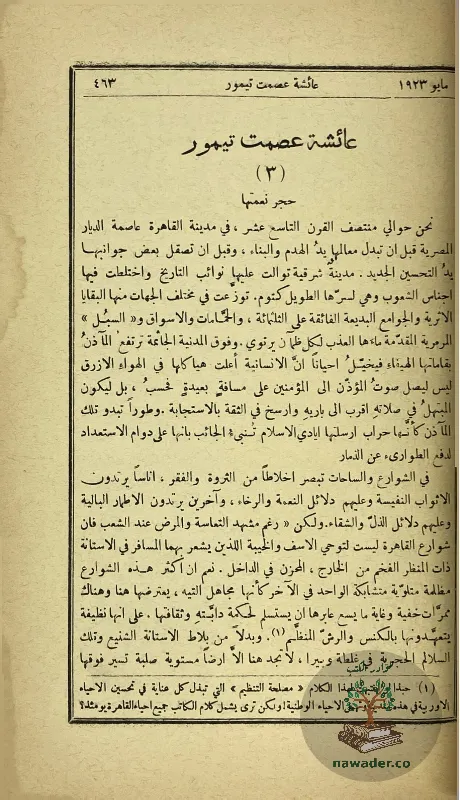 مايو ١٩٢٣ عائشة عصمت تيمور ٤٦٣
عائشة عصمت تيمور
(٣)
حجر نعمتها
نحن حوالي منتصف القرن التاسع عشر ، في مدينة القاهرة عاصمة الديار
المصرية قبل ان تبدل معالمها يدُ الهدم والبناء ، وقبل ان تصقل بعض جوانبها
يدُ التحسين الجديد . مدينةٌ شرقية توالت عليها نوائب التاريخ واختلطت فيها
اجناس الشعوب وهي لسرّها الطويل كتوم. توزَّعت في مختلف الجهات منها البقايا
الاثرية والجوامع البديعة الفائقة على الثلثمائة ، والحمَّامات والاسواق و« السبُل »
المرمرية المقدّمة ماءها العذب لكل ظمآن يرتوي . وفوق المدنية الجاثمة ترتفع المآذنُ
بقاماتها الهيفاء فيخيَّلُ احياناً انَّ الانسانية أعلت هياكلها في الهواءِ الازرق
ليس ليصل صوتُ المؤذّن الى المؤمنين على مسافةٍ بعيدةٍ فحسبُ ، بل ليكون
المبتهلُ في صلاتهِ اقرب الى باريهِ وارسخ في الثقة بالاستجابة . وطوراً تبدو تلك
المآذن كأنَّها حراب ارسلتها ايادي الاسلام تُنبئ الجائب بانها على دوام الاستعداد
لدفع الطوارىء عن الذمار
في الشوارع والساحات تبصر اخلاطاً من الثروة والفقر ، اناساً يرتدون
الاثواب النفيسة وعليهم دلائل النعمة والرخاء ، وآخرين يرتدون الاطمار البالية
وعليهم دلائل الذلّ والشقاء. ولكن « رغم مشهد التعاسة والمرض عند الشعب فان
شوارع القاهرة ليست لتوحي الاسف والخيبة اللذين يشعر بهما المسافر في الاستانة
ذات المنظر الفخم من الخارج ، المحزن في الداخل . نعم ان اكثر هذه الشوارع
مظلمة متلوّية متشابكة الواحد في الآخر كأنها مجاهل التيه ، يعترضها هنا وهناك
ممرَّات خفية وغاية ما يسع عابرها ان يستسلم لحكمة دابَّته وثقافتها . على انها نظيفة
يتعهّدونها بالكنس والرشّ المنظَّم (١). وبدلاً من بلاط الاستانة الشنيع وتلك
السلالم الحجرية في غلطة وبيرا ، لا تجد هنا الاَّ ارضاً مستوية صلبة تسير فوقها
(١) حبذا لهذا الكلام « مصلحة التنظيم » التي تبذل كل عناية في تحسين الاحياء
الاوربية في هذه الاحياء الوطنية ! ولكن ترى يشمل كلام الكاتب جميع احياء القاهرة يومئذ؟
نوادر الكتب
nawader.co